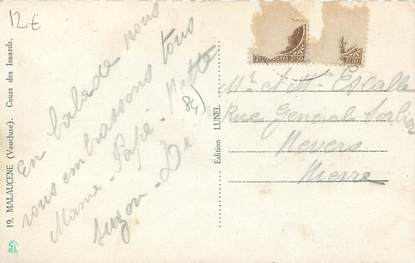 12€
19. MALAUCENE (Vaucluse). Cours des Isnards.
En balade nous
vous embrassons tous
Mamie - Papé -
Suzon -
(84)
Edition LUNEL
Mr et Mme Escalle
Rue Général
Nevers
Nièvre